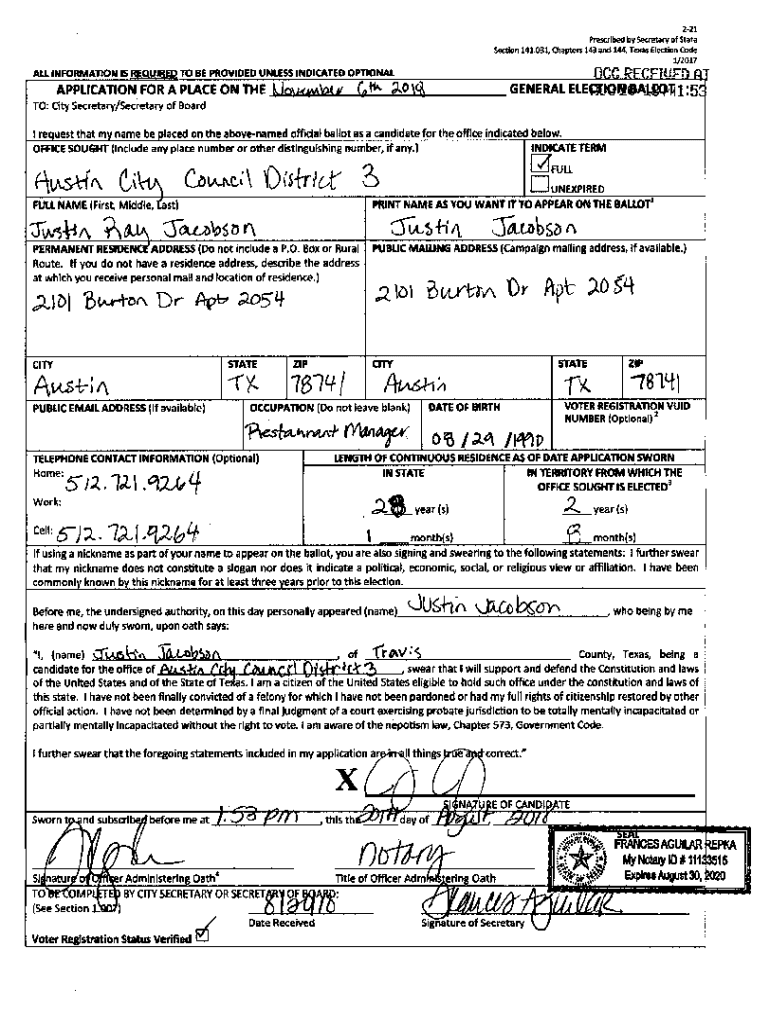 2-21
Prescribed by Secretary of State
Section 141.031, Chapters 143 and 144, Texas Election Code
1/2017
ALL INFORMATION IS REQUIRED TO BE PROVIDED UNLESS INDICATED OPTIONAL
OCC RECEIVED AT
APPLICATION FOR A PLACE ON THE November 6th 2018 GENERAL ELECTION BALLOT
TO: City Secretary/Secretary of Board
I request that my name be placed on the above-named official ballot as a candidate for the office indicated below.
OFFICE SOUGHT (Include any place number or other distinguishing number, if any.) INDICATE TERM
Austin City Council District 3
FULL
UNEXPIRED
FULL NAME (First, Middle, Last) PRINT NAME AS YOU WANT IT TO APPEAR ON THE BALLOT1
Justin Ray Jacobson Justin Jacobson
PERMANENT RESIDENCE ADDRESS (Do not include a P.O. Box or Rural Route. If you do not have a residence address, describe the address at which you receive personal mail and location of residence.)
PUBLIC MAILING ADDRESS (Campaign mailing address, if available.)
2101 Burton Dr Apt 2054 2101 Burton Dr Apt 2054
CITY STATE ZIP CITY STATE ZIP
Austin TX 78741 Austin TX 78741
PUBLIC EMAIL ADDRESS (If available) OCCUPATION (Do not leave blank) DATE OF BIRTH VOTER REGISTRATION VUID NUMBER (Optional)2
Restaurant Manager 08/29/1990
TELEPHONE CONTACT INFORMATION (Optional) LENGTH OF CONTINUOUS RESIDENCE AS OF DATE APPLICATION SWORN
Home: 512.721.9264
IN STATE IN TERRITORY FROM WHICH THE OFFICE SOUGHT IS ELECTED3
Work: 28 year(s) 2 year(s)
Cell: 512.721.9264 1 month(s) 8 month(s)
If using a nickname as part of your name to appear on the ballot, you are also signing and swearing to the following statements: I further swear
that my nickname does not constitute a slogan nor does it indicate a political, economic, social, or religious view or affiliation. I have been
commonly known by this nickname for at least three years prior to this election.
Before me, the undersigned authority, on this day personally appeared (name) Justin Jacobson, who being by me
here and now duly sworn, upon oath says:
"I, (name) Justin Jacobson, of Travis County, Texas, being a
candidate for the office of Austin City Council District 3, swear that I will support and defend the Constitution and laws
of the United States and of the State of Texas. I am a citizen of the United States eligible to hold such office under the constitution and laws of
this state. I have not been finally convicted of a felony for which I have not been pardoned or had my full rights of citizenship restored by other
official action. I have not been determined by a final judgment of a court exercising probate jurisdiction to be totally mentally incapacitated or
partially mentally incapacitated without the right to vote. I am aware of the nepotism law, Chapter 573, Government Code.
I further swear that the foregoing statements included in my application are in all things true and correct."
X
SIGNATURE OF CANDIDATE
Sworn to and subscribed before me at 1:53 pm, this the 20th day of August, 2018
Notary
SEAL
FRANCES AGUILAR REPKA
My Notary ID # 11133515
Expires August 30, 2020
Signature of Officer Administering Oath4 Title of Officer Administering Oath
TO BE COMPLETED BY CITY SECRETARY OR SECRETARY OF BOARD:
(See Section 1.007)
Frances Aguilar
Date Received Signature of Secretary
Voter Registration Status Verified